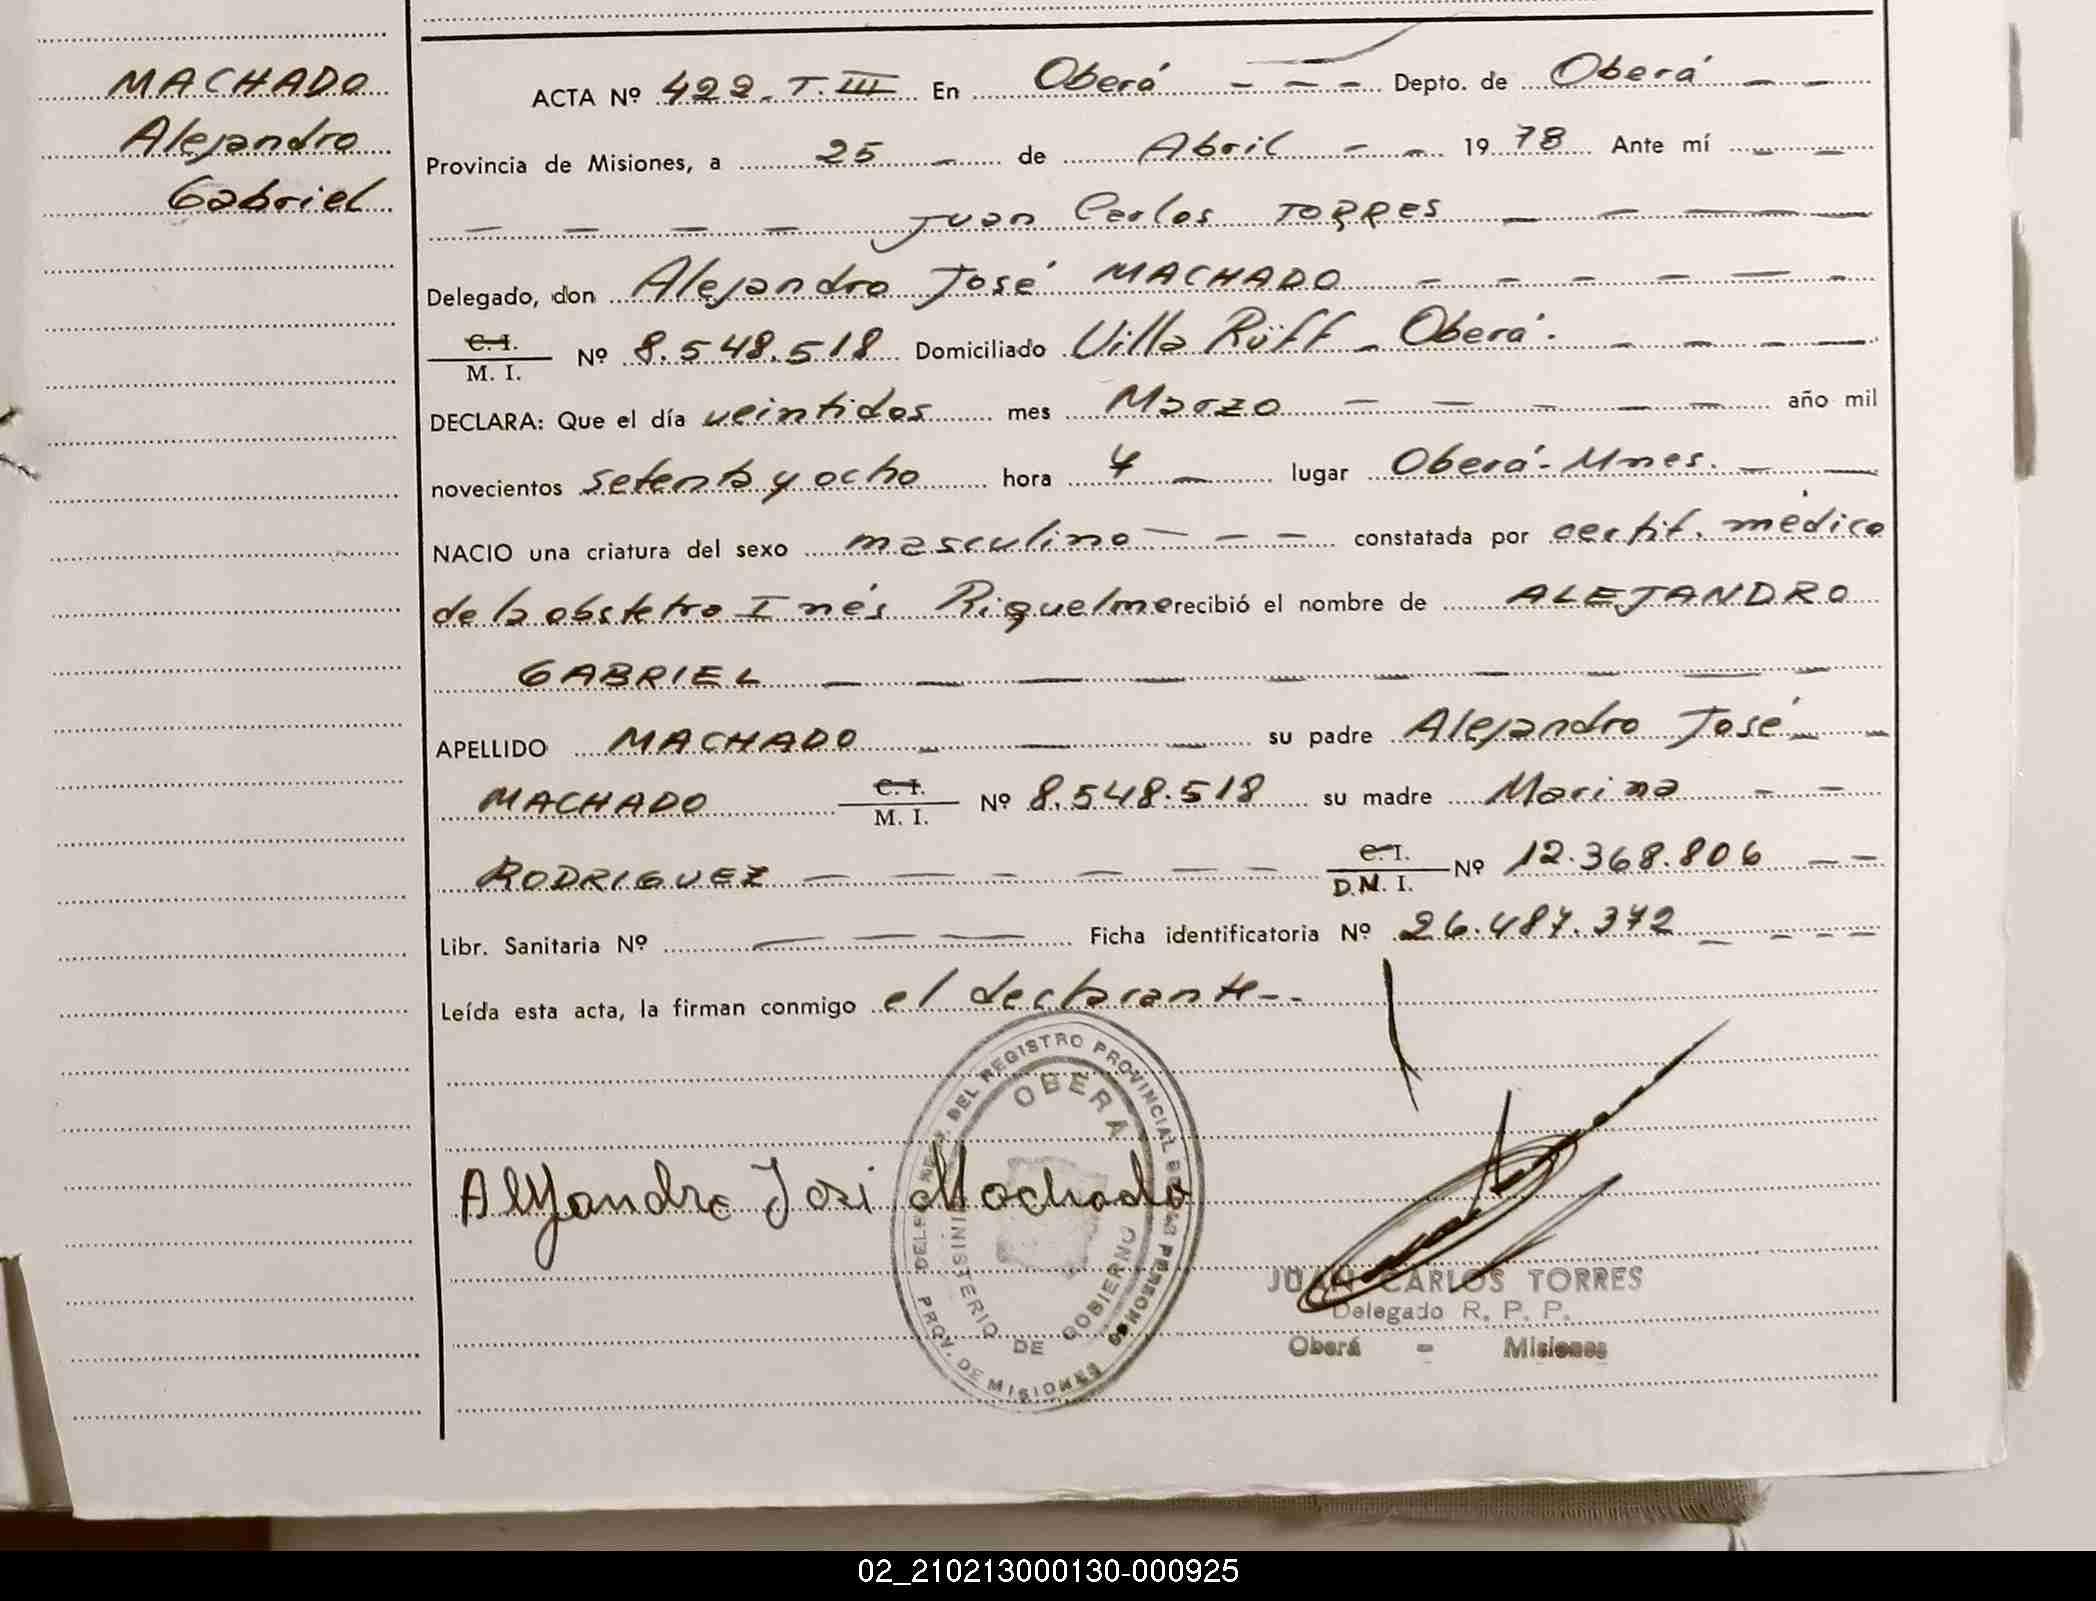 MACHADO
Alejandro
Gabriel
ACTA Nº 422. T. III En Oberá - - - Depto. de Oberá - -
Provincia de Misiones, a 25 - de Abril - - 1978 Ante mí - -
- - - - Juan Carlos TORRES - - - -
Delegado, don Alejandro José MACHADO - - - - - -
C. I.
M. I. Nº 8.548.518 Domiciliado Villa Rüff - Oberá. - - - -
DECLARA: Que el día veintidos mes Marzo - - - - - año mil
novecientos setenta y ocho hora 4 - lugar Oberá - Mnes. - -
NACIO una criatura del sexo masculino - - - constatada por certif. médico
de la obstetra Inés Riquelme recibió el nombre de ALEJANDRO
GABRIEL - - - - - - - - -
APELLIDO MACHADO - - - su padre Alejandro José - -
MACHADO C. I.
M. I. Nº 8.548.518 su madre Marina - -
RODRIGUEZ - - - - - - C. I.
D.N. I. Nº 12.368.806 - -
Libr. Sanitaria Nº - - - Ficha identificatoria Nº 26.487.372 - - - -
Leída esta acta, la firman conmigo el declarante - -
DEL REGISTRO PROVINCIAL DE LAS PERSONAS
OBERÁ
MINISTERIO DE GOBIERNO
PROV. DE MISIONES
Alejandro José Machado
JUAN CARLOS TORRES
Delegado R. P. P.
Oberá - Misiones
02_210213000130-000925